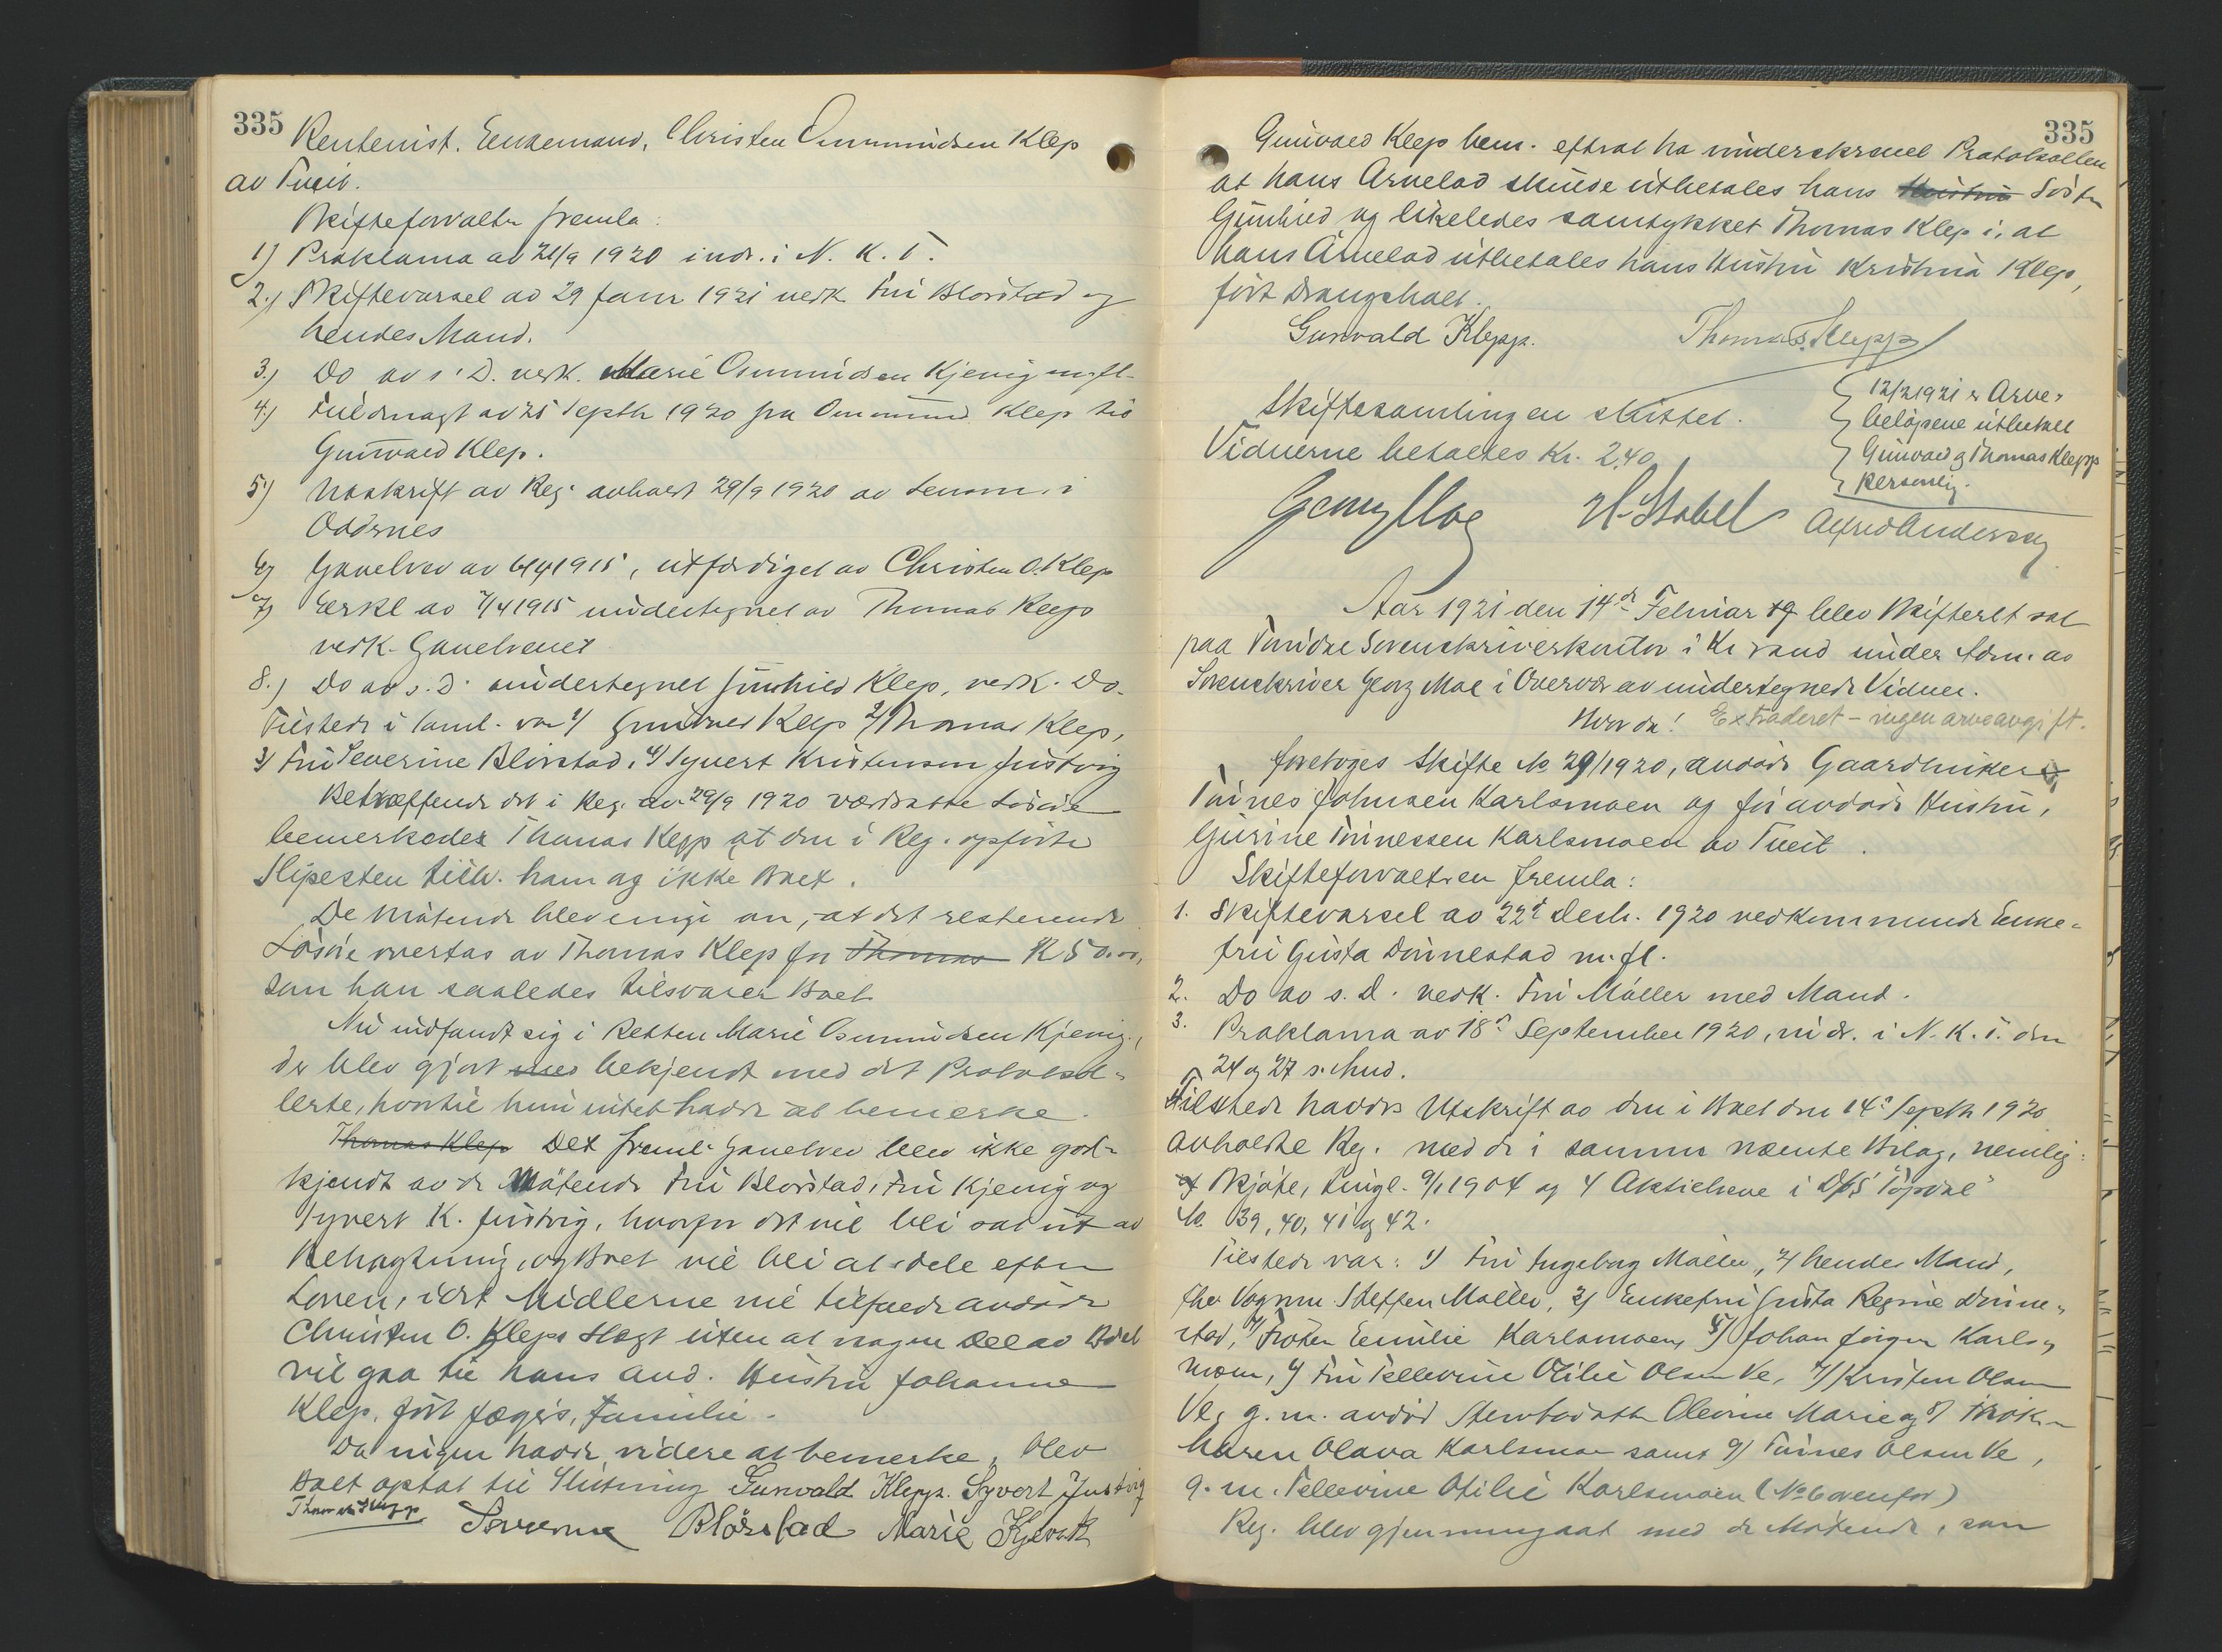 335
Rentenist. Enkemand, Christen Osmundsen Klep
av Tveit.
Skifteforvalter fremla:
1) Proklama av 21/9 1920 indr. i N. K. T.
2.) Skiftevarsel av 29 Janr 1921 vedk Fru Blörstad og
hendes Mand.
3.) Do av s. D. vedk. Marie Osmundsen Kjevig m. fl.
4.) Fuldmagt av 25 Septbr 1920 fra Osmund Klep til
Gunvald Klep.
5.) Utskrift av Reg. avholdt 29/9 1920 av Lensm. i
Oddernes
6) Gavebrev av 6/4 1915, utfærdiget av Christen O. Klep
og 7) Erkl av 7/4 1915 undertegnet av Thomas Klep
vedk. Gavebrevet
8.) Do av s. D. undertegnet Gunhild Klep, vedk. Do.
Tilstede i Saml. var 1/ Gunvald Klep 2/ Thomas Klep,
3/ Fru Severine Blörstad, 4/ Syvert Kristensen Justvig
Betræffende det i Reg. av 29/9 1920 værdsatte Lösöre
bemerkedes Thomas Klepp at den i Reg. opförte
Slipesten tilh. ham og ikke Boet.
De Mötende blev enige om, at det resterende
Lösöre overtas av Thomas Klep for Thomas K 50.00,
som han saaledes tilsvarer Boet
Nu indfandt sig i Retten Marie Osmundsen Kjevig,
der blev gjort med bekjendt med det Protokol-
lerte, hvortil hun intet hadde at bemerke.
Thomas Klep Det freml. Gavebrev blev ikke god-
kjendt av de Mötende Fru Blörstad, Fru Kjevig og
Syvert K. Justvig, hvorfor det vil bli sat ut av
Betragtning, og Boet vil bli at dele efter
Loven, idet Midlerne vil tilfalde avdöde
Christen O. Kleps Slegt uten at nogen Del av Boet
vil gaa til hans avd. Hustru Johanne
Klep, födt Jæger's, Familie.
Da ingen hadde videre at bemerke, blev
Boet optat til Slutning Gunvald Klepp. Syvert Justvig
Thomas Klepp Severine Blörstad Marie Kjevik
335
Gunvald Klep bem. efterat ha underskrevet Protokollen
at hans Arvelod skulde utbetales hans Hustru Söster
Gunhild og likeledes samtykket Thomas Klep i, at
hans Arvelod utbetales hans Hustru Kristina Klep,
födt Drangsholt.
Gunvald Klepp. Thomas Klepp
Skiftesamlingen sluttet.
Vidnerne betaltes Kr. 2,40
12/2 1921 er Arve-
belöpene utbetalt
Gunvald og Thomas Klepp
personlig.
Georg Moe H. Stabel Alfred Andersen
Aar 1921 den 14de Februar 19 blev Skifteret sat
paa Torridal Sorenskriverkontor i Kr sand under Adm. av
Sorenskriver Georg Moe i Overvær av undertegnede Vidner.
Hvorda! Extraderet - ingen arveavgift.
foretoges Skifte No 29/1920, avdöde Gaardbruker
Tönnes Johnsen Karlsmoen og för avdöde Hustru,
Gurine Tönnessen Karlsmoen av Tveit.
Skifteforvalteren fremla:
1. Skiftevarsel av 22d Decb. 1920 vedkommende Enke-
fru Gusta Dönnestad m. fl.
2. Do av s. D. vedk. Fru Möller med Mand.
3. Proklama av 18d September 1920, indr. i N. K. T. den
24 og 27 s. Mnd.
Tilstede havdes Utskrift av den i Boet den 14d Septbr 1920
avholdte Reg. med de i samme nævnte Bilag, nemlig:
Skjöte, tingl. 9/1 1904 og 4 Aktiebreve i D/S "Topdal"
No. 39, 40, 41 og 42.
Tilstede var: 1) Fru Ingeborg Möller, 2/ hendes Mand,
Steffen Möller, 3/ Enkefru Gusta Regine Dönne-
stad, 4/ Fröken Emilie Karlsmoen, 5/ Johan Jörgen Karls-
moen, 6/ Fru Tellevine Otilie Olsen Ve, 7/ Kristen Olsen
Ve, g. m. avdöd Olevine Marie og 8/ Frök.
Karen Olava Karlsmoen samt 9/ Tönnes Olsen Ve,
g. m. Tellevine Otilie Karlsmoen (No 6 ovenfor)
Reg. blev gjennemgaat med de Mötende, som